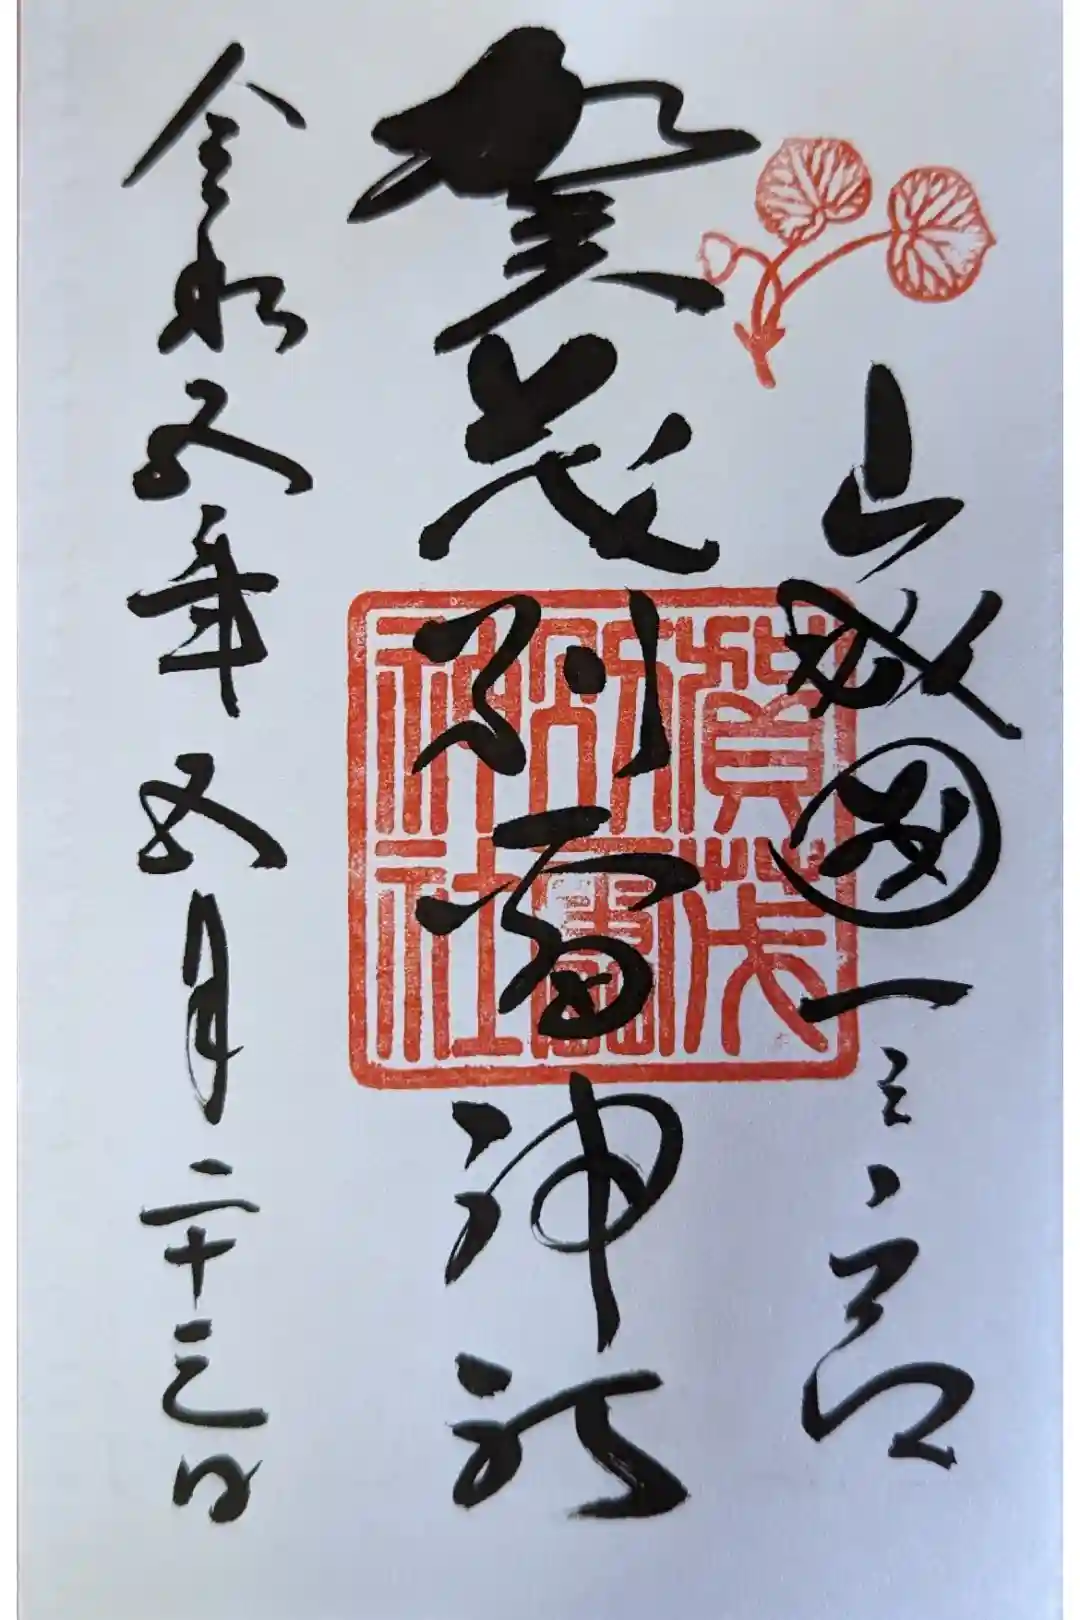 山城國一之宮
賀茂別雷神社
賀茂
別雷
神社
令和五年五月二十三日